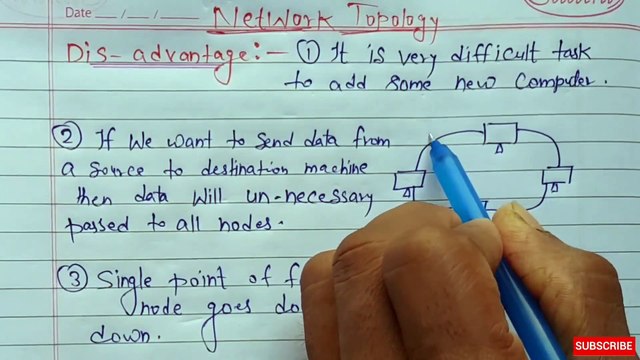 Date __/__/__
Network Topology
Dis-advantage:- ① It is very difficult task
to add some new Computer.
② If We want to send data from
a source to destination machine
then data will un-necessary
passed to all nodes.
③ Single point of
node goes
down.
SUBSCRIBE